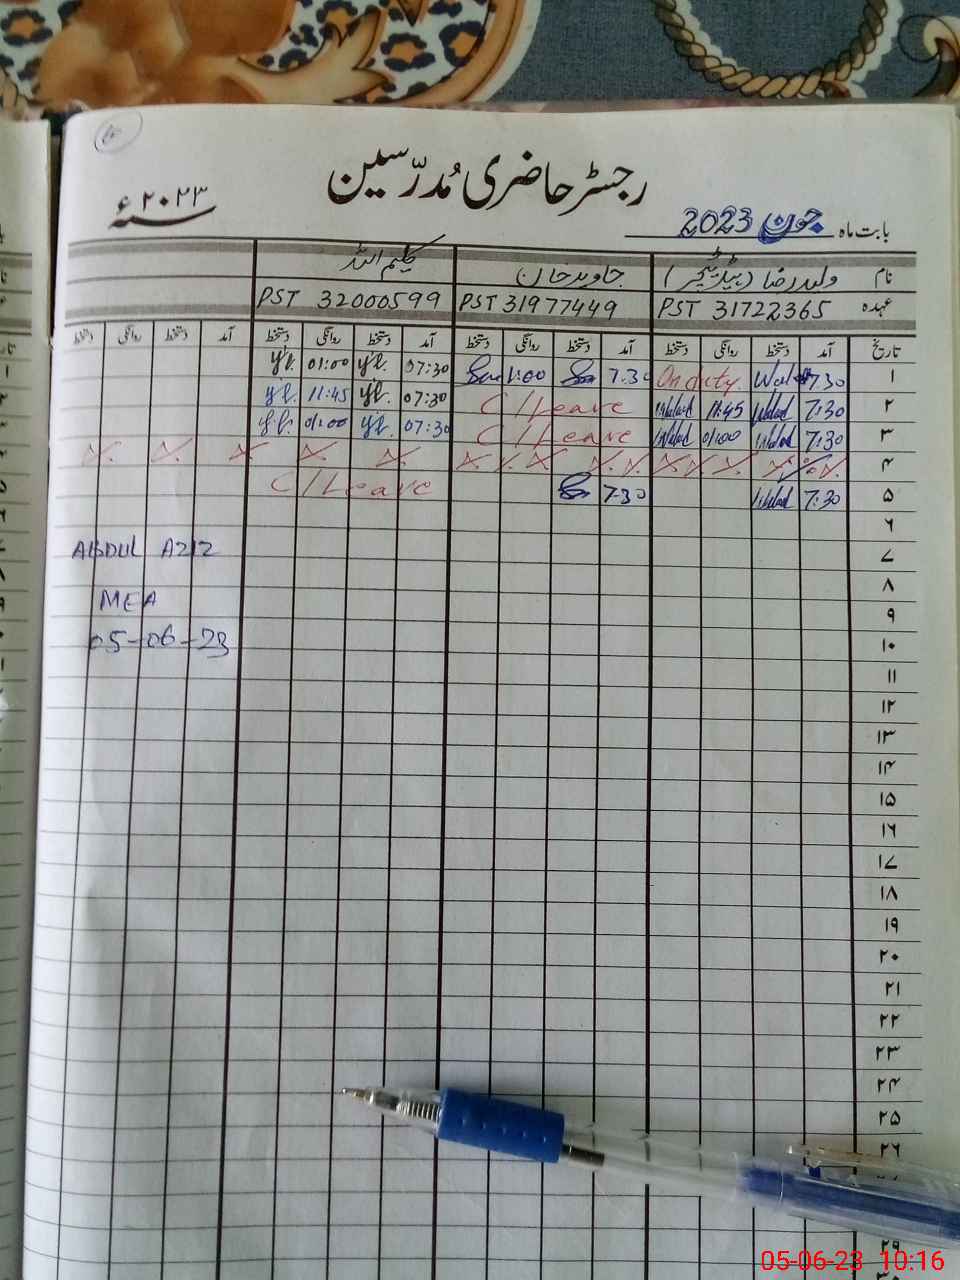 رجسٹر حاضری مُدرّسین
سنہ ۲۰۲۳ء
بابت ماہ جون 2023
نام ولید رضا (ہیڈ ٹیچر) جاوید خان کلیم اللہ
عہدہ PST 31722365 PST 31977449 PST 32000599
تاریخ آمد دستخط روانگی دستخط آمد دستخط روانگی دستخط آمد دستخط روانگی دستخط آمد دستخط روانگی دستخط
۱ 7.30 On duty. 7.30 1:00 07:30 01:00
۲ 7:30 11:45 C/Leave 07:30 11:45
۳ 7:30 01:00 C/Leave 07:30 01:00
۴
۵ 7:30 7.30 C/Leave
۶
۷ ABDUL AZIZ
۸ MEA
۹
۱۰ 05-06-23
۱۱
۱۲
۱۳
۱۴
۱۵
۱۶
۱۷
۱۸
۱۹
۲۰
۲۱
۲۲
۲۳
۲۴
۲۵
۲۶
۲۹
05-06-23 10:16